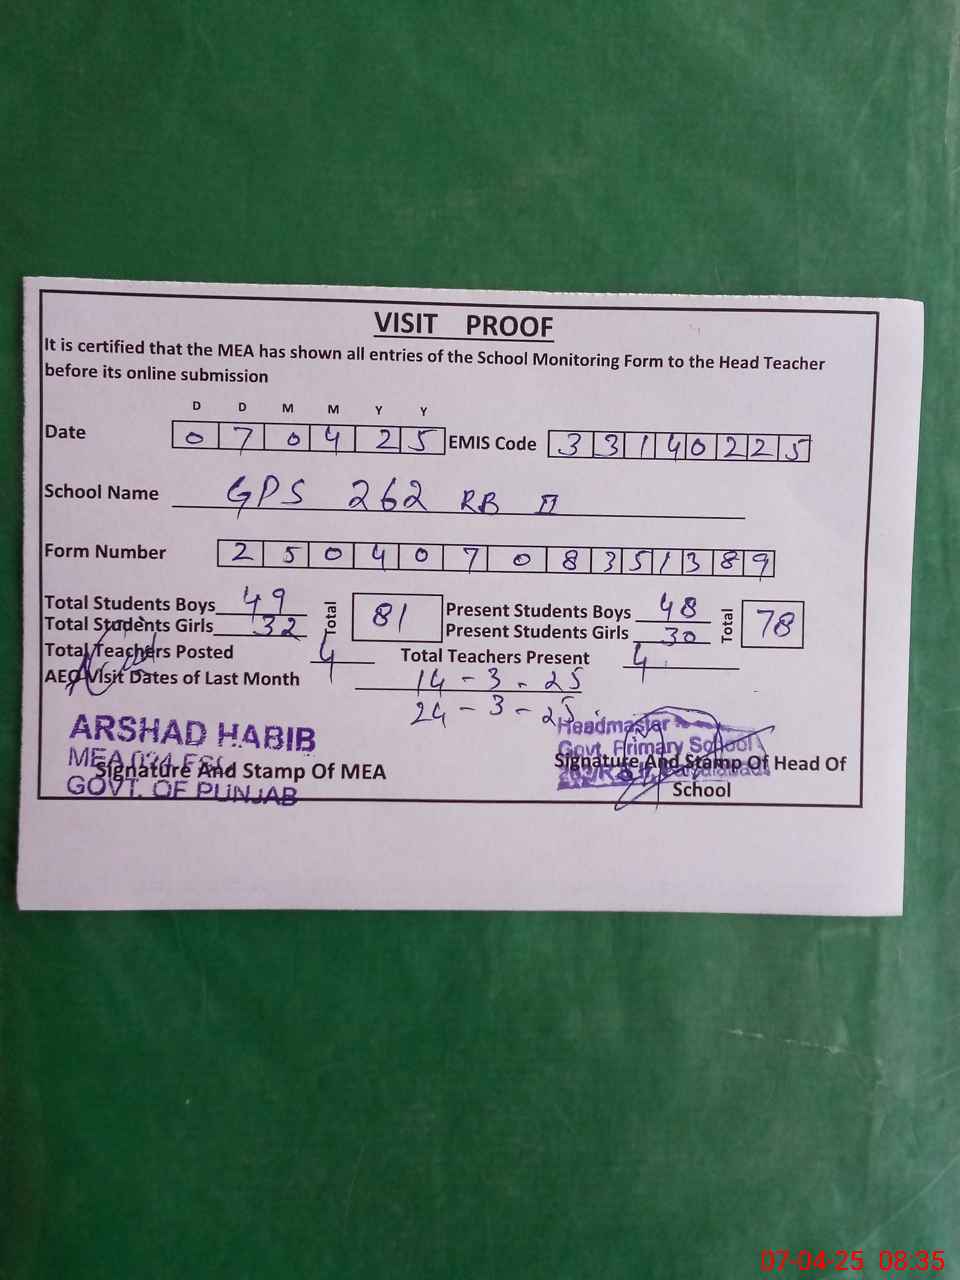 VISIT PROOF
It is certified that the MEA has shown all entries of the School Monitoring Form to the Head Teacher
before its online submission
D D M M Y Y
Date 0 7 0 4 2 5 EMIS Code 3 3 1 4 0 2 2 5
School Name GPS 262 RB II
Form Number 2 5 0 4 0 7 0 8 3 5 1 3 8 9
Total Students Boys 49 Total 81 Present Students Boys 48 Total 78
Total Students Girls 32 Present Students Girls 30
Total Teachers Posted 4 Total Teachers Present 4
AEO Visit Dates of Last Month 14-3-25
24-3-25
ARSHAD HABIB
MEA
GOVT. OF PUNJAB
Signature And Stamp Of MEA
Headmaster
Govt. Primary School
Signature And Stamp Of Head Of
School
07-04-25 08:35